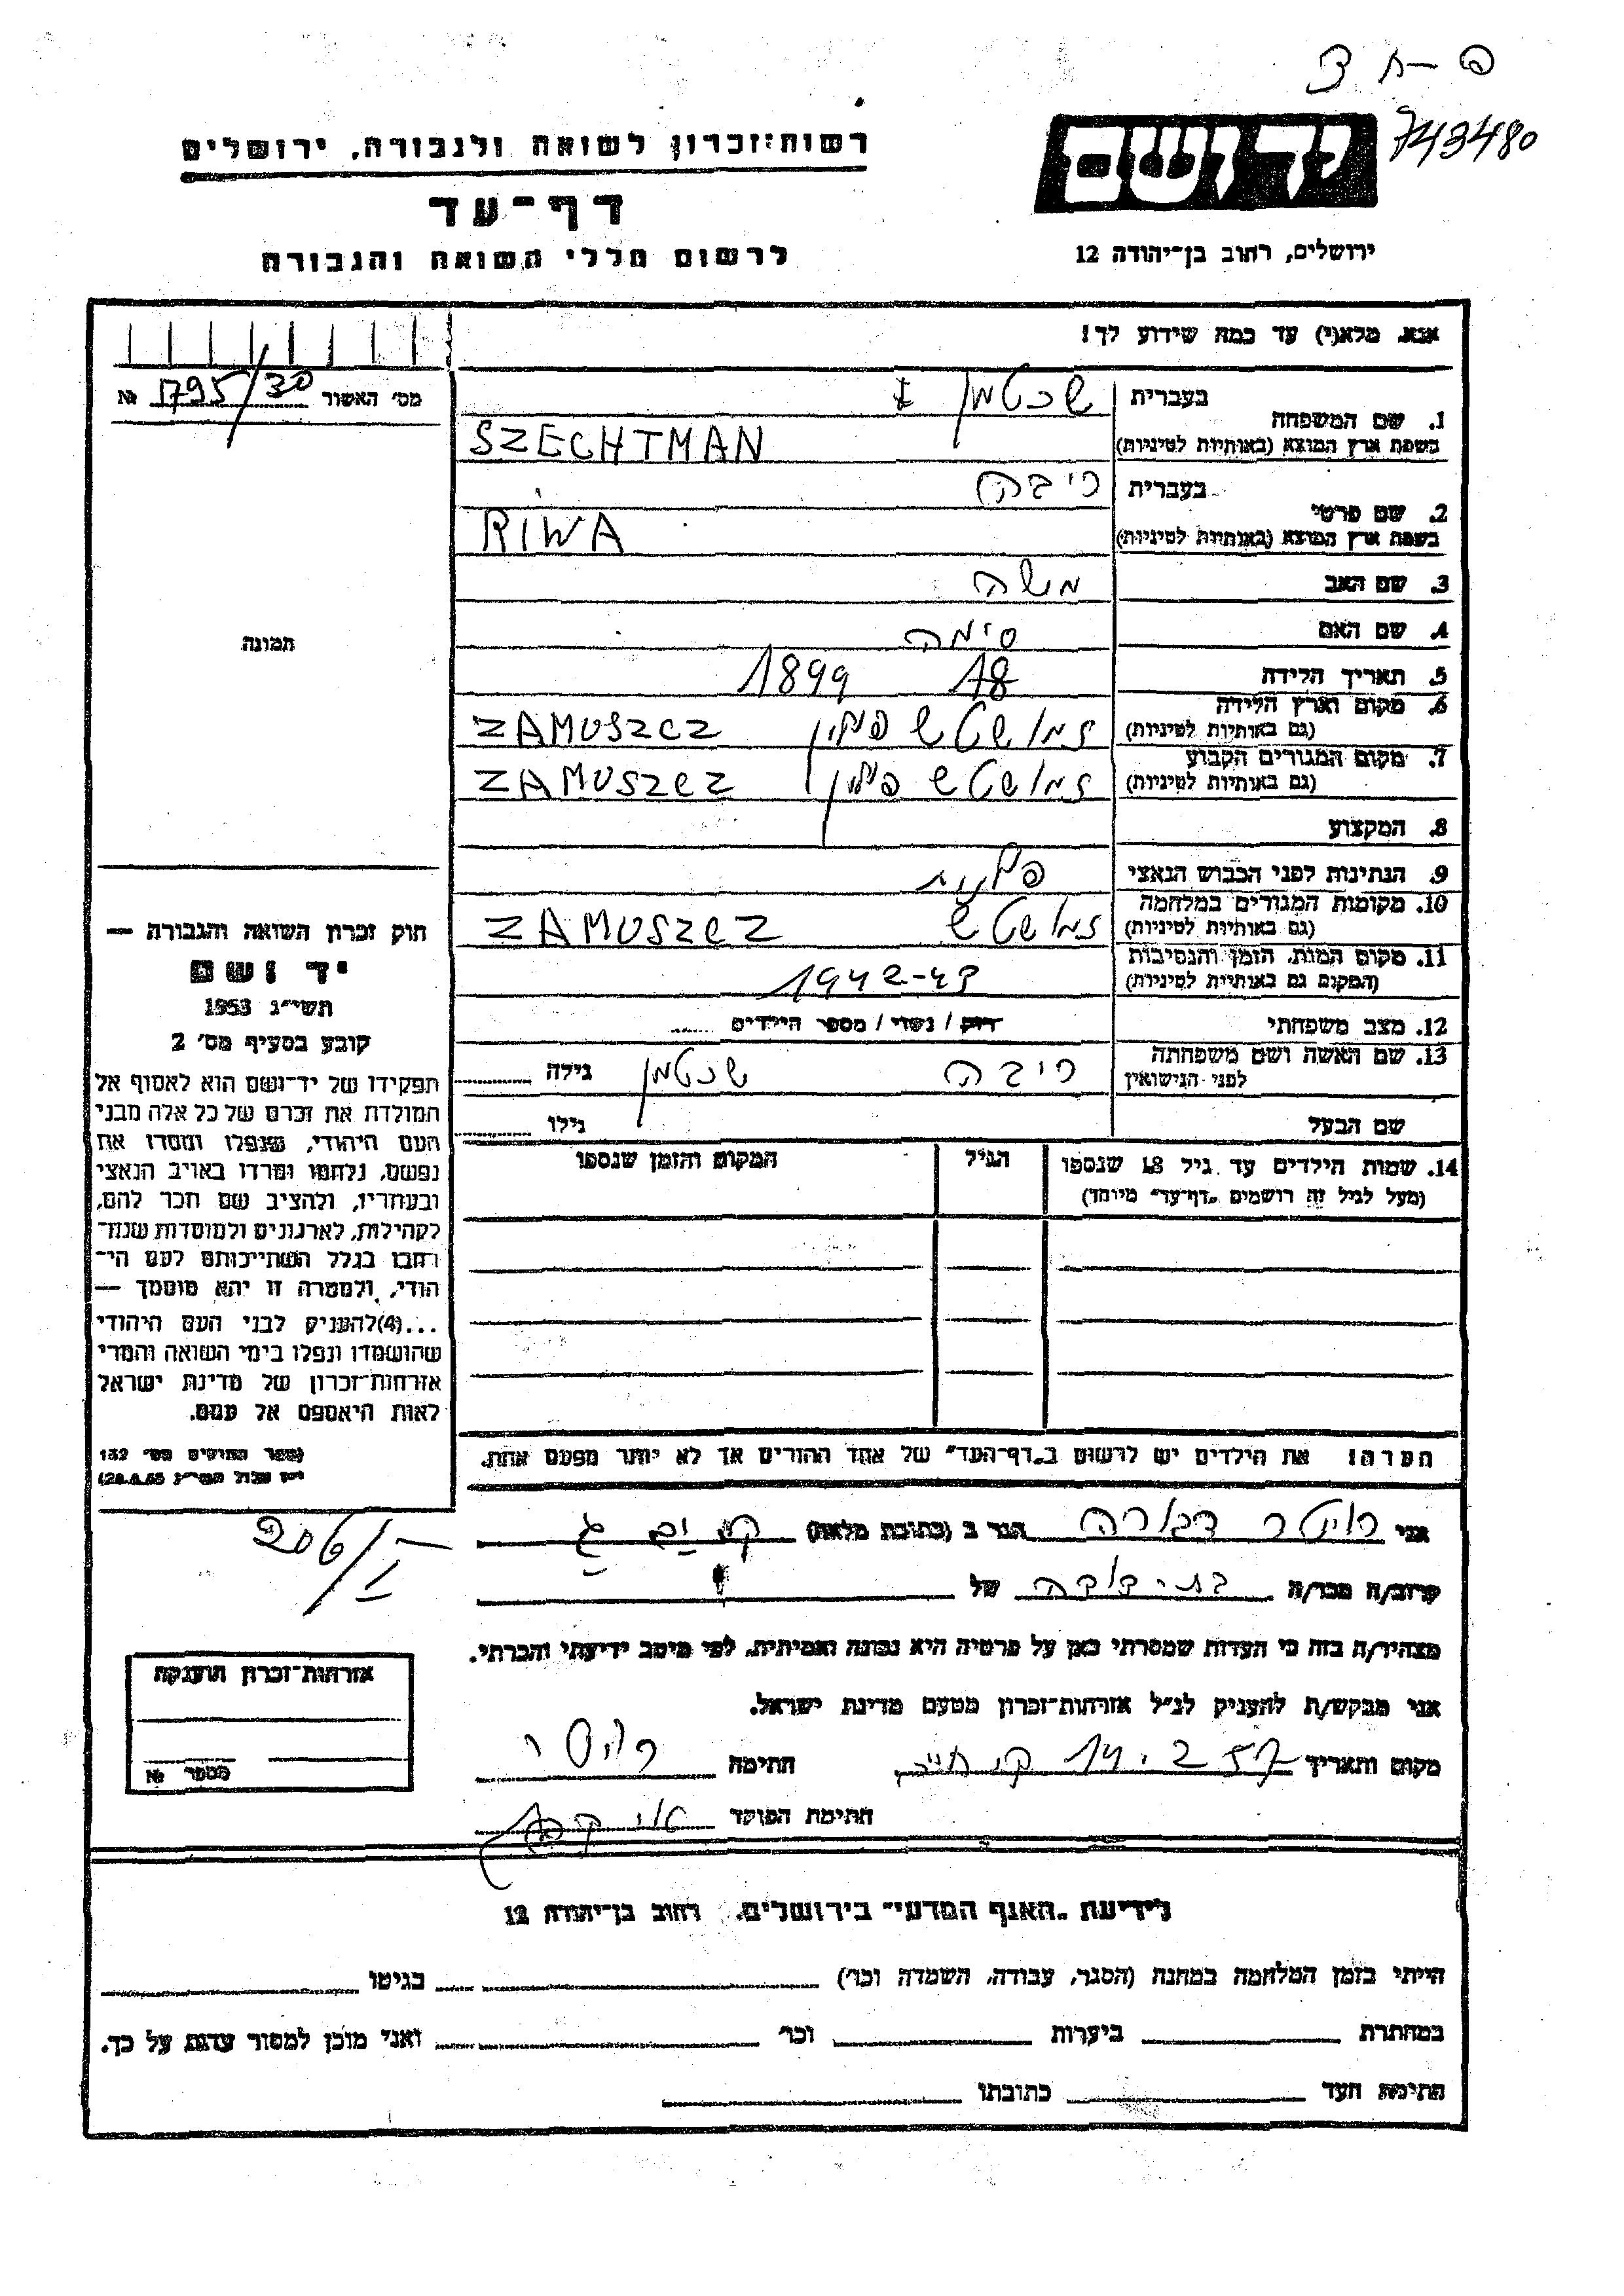 743480
יד ושם
רשות־זכרון לשואה ולגבורה, ירושלים
דף־עד
לרשום חללי השואה והגבורה
ירושלים, רחוב בן־יהודה 12
אנא, מלא(י) עד כמה שידוע לך!
מס' האשור 1795/30 №
בעברית שכטמן
1. שם המשפחה
בשפת ארץ המוצא (באותיות לטיניות) SZECHTMAN
בעברית ריבה
2. שם פרטי
בשפת ארץ המוצא (באותיות לטיניות) RIWA
3. שם האב משה
4. שם האם סימה
תמונה
5. תאריך הלידה 18 1899
6. מקום וארץ הלידה
(גם באותיות לטיניות) זמושטש פולין ZAMUSZCZ
7. מקום המגורים הקבוע
(גם באותיות לטיניות) זמושטש פולין ZAMUSZCZ
8. המקצוע
9. הנתינות לפני הכבוש הנאצי פולנית
10. מקומות המגורים במלחמה
(גם באותיות לטיניות) זמושטש ZAMUSZCZ
11. מקום המות, הזמן והנסיבות
(המקום גם באותיות לטיניות) 1942-43
12. מצב משפחתי רווק / נשוי / מספר הילדים
13. שם האשה ושם משפחתה
לפני הנישואין ריבה שכטמן גילה
שם הבעל גילו
14. שמות הילדים עד גיל 18 שנספו הגיל המקום והזמן שנספו
(מעל לגיל זה רושמים „דף־עד” מיוחד)
חוק זכרון השואה והגבורה —
יד ושם
תשי"ג 1953
קובע בסעיף מס' 2
תפקידו של יד־ושם הוא לאסוף אל
המולדת את זכרם של כל אלה מבני
העם היהודי, שנפלו ומסרו את
נפשם, נלחמו ומרדו באויב הנאצי
ובעוזריו, ולהציב שם וזכר להם,
לקהילות, לארגונים ולמוסדות שנח־
רבו בגלל השתייכותם לעם הי־
הודי, ולמטרה זו יהא מוסמך —
...(4)להעניק לבני העם היהודי
שהושמדו ונפלו בימי השואה והמרי
אזרחות־זכרון של מדינת ישראל
לאות היאספם אל עמם.
(ספר החוקים מס' 132
הערה: את הילדים יש לרשום ב„דף־העד” של אחד ההורים אך לא יותר מפעם אחת.
206/I
אני רויטר דבורה הגר ב (כתובת מלאה) ק. ים ג
קרוב/ה מכר/ה בת־דודה של
מצהיר/ה בזה כי העדות שמסרתי כאן על פרטיה היא נכונה ואמיתית, לפי מיטב ידיעתי והכרתי.
אני מבקש/ת להעניק לנ"ל אזרחות־זכרון מטעם מדינת ישראל.
מקום ותאריך 14.2.57 חתימה רויטר
חתימת הפוקד
אזרחות־זכרון הוענקה
מספר №
לידיעת „האגף המדעי” בירושלים, רחוב בן־יהודה 12
הייתי בזמן המלחמה במחנה (הסגר, עבודה, השמדה וכו') בגיטו
במחתרת ביערות וכו' ואני מוכן למסור עדות על כך.
חתימת העד כתובתו